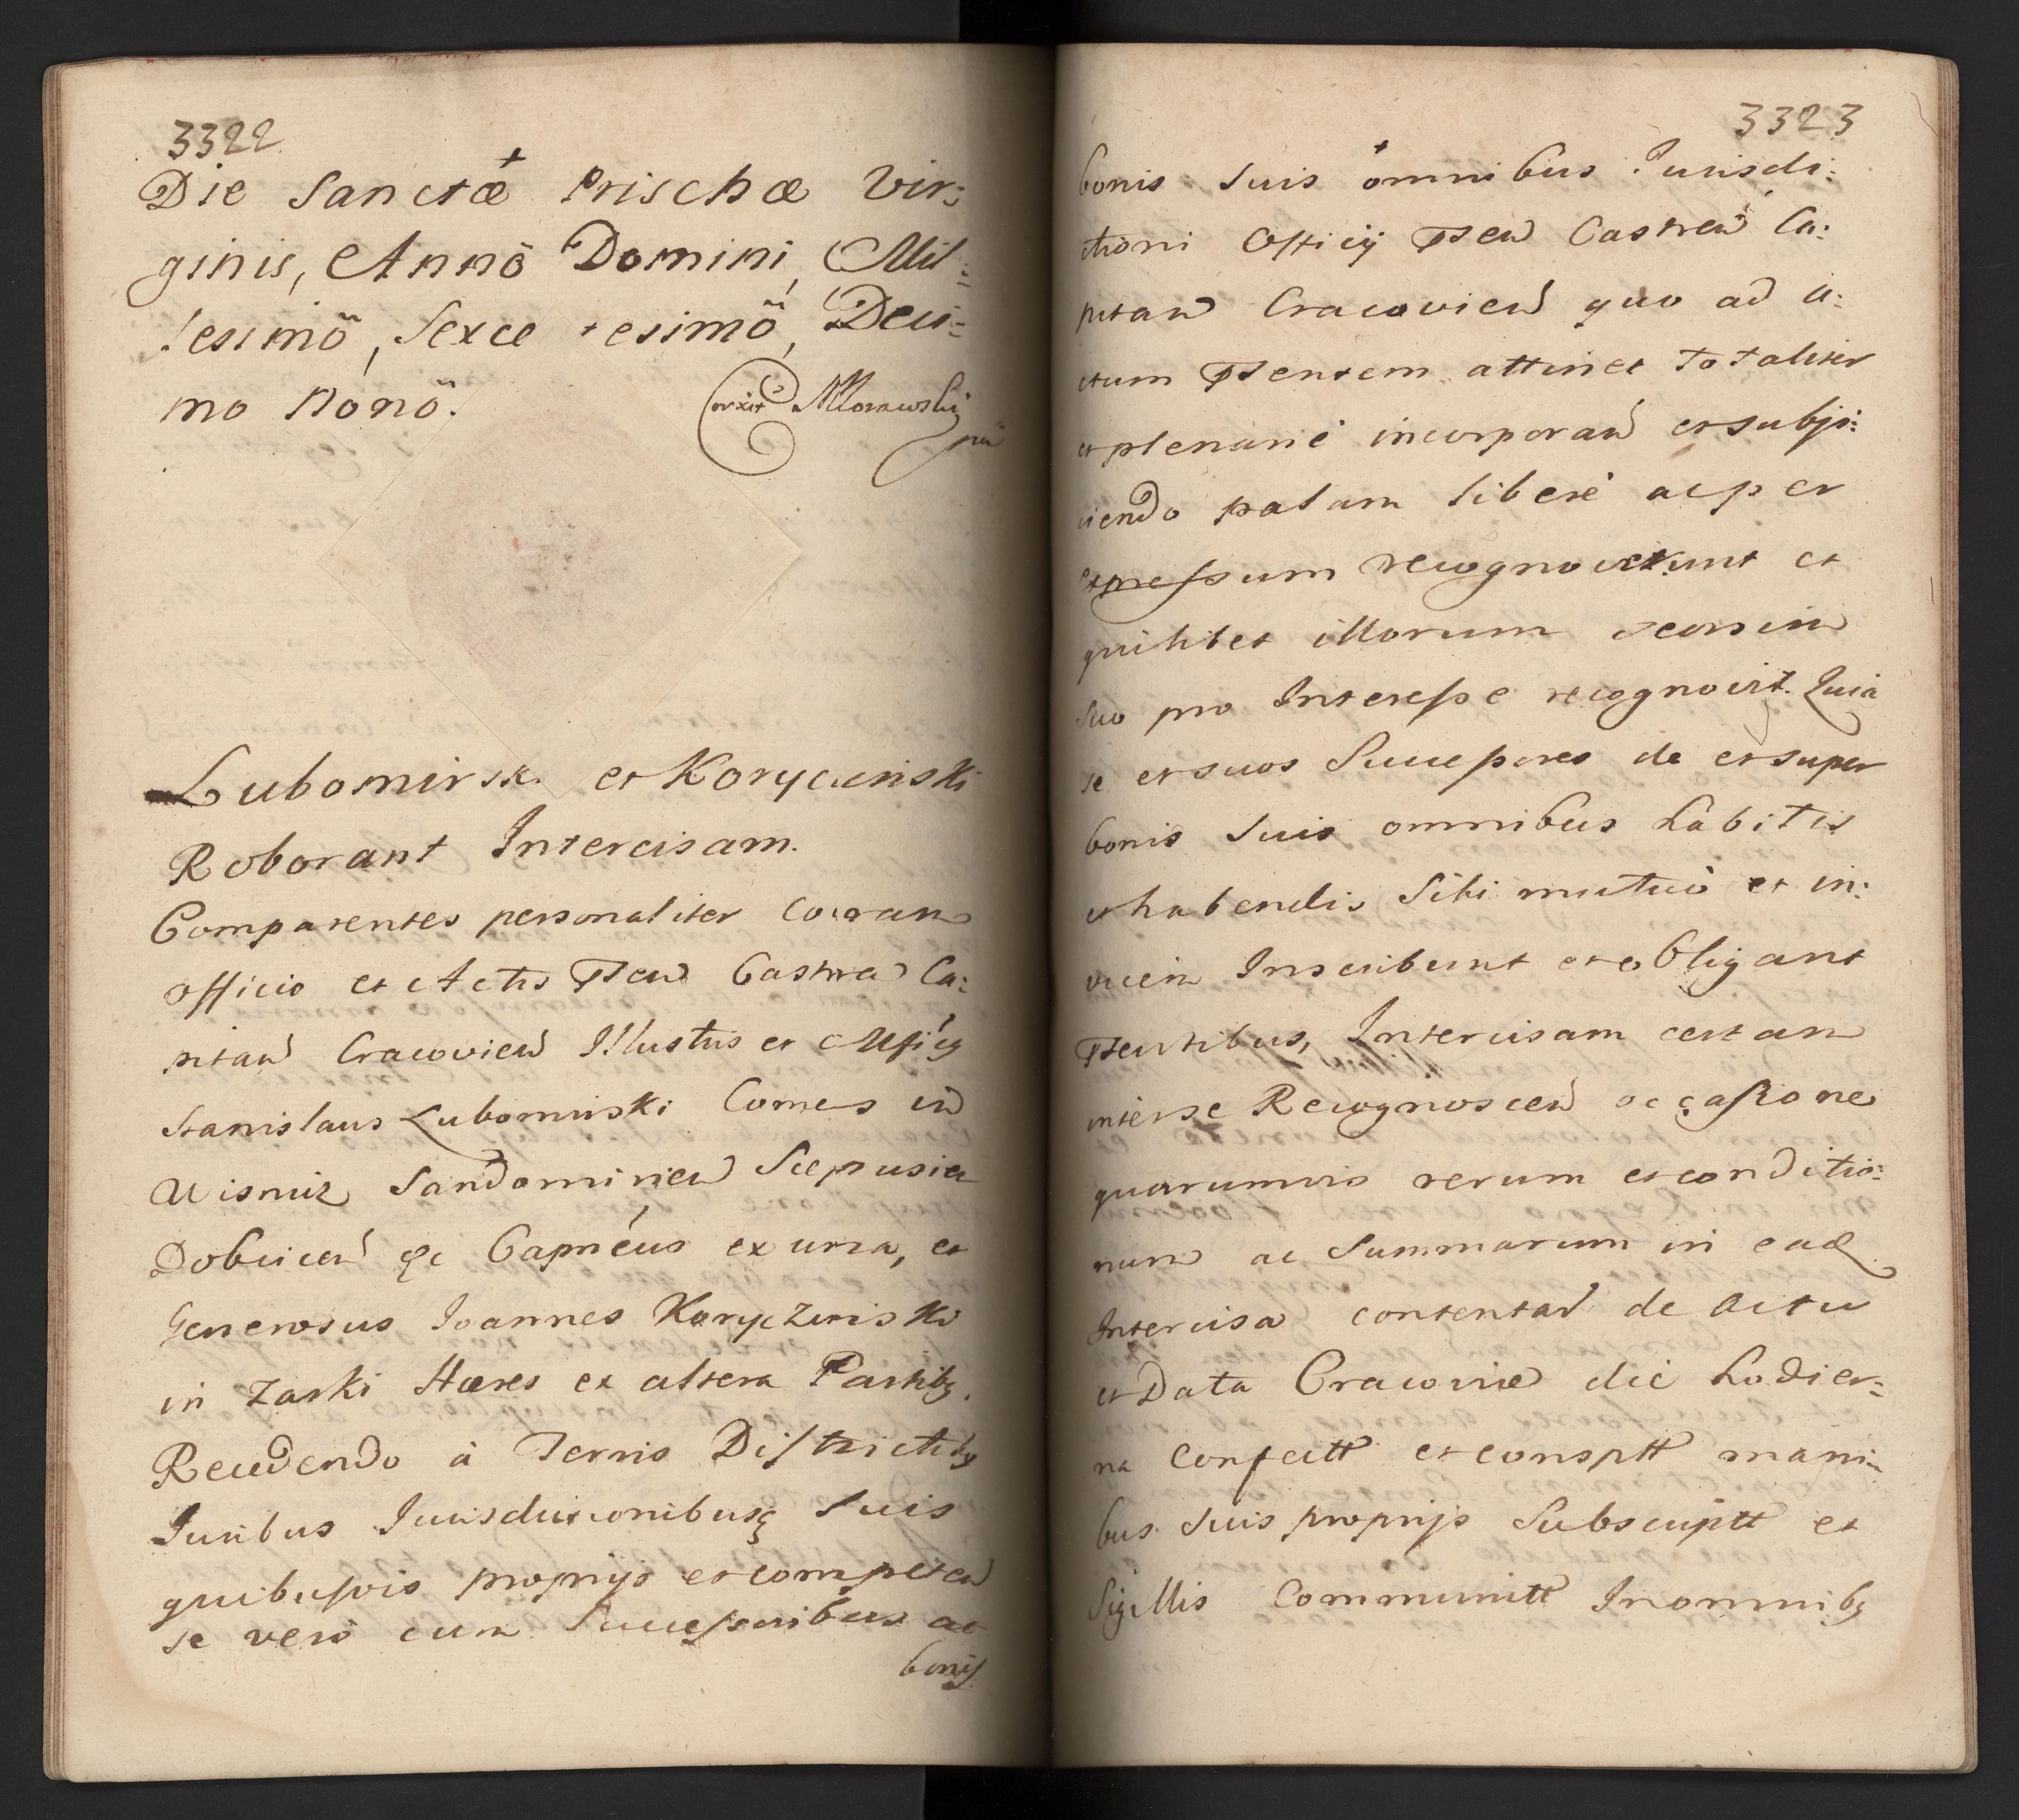 3322
Die Sanctæ Prischæ Vir:
ginis, Annõ Domini, Mil:
lesimõ, Sexce tesimõ, Deci=
mo Nonõ.
Corxit Morawski
Lubomirski et Koryciński
Roborant Intercisam.
Comparentes personaliter Coram
Officio et Actis Psen Castren Ca:
pitan Cracovien Illustris et Mficg
Stanislaus Lubomirski Comes in
Wisnicz Sandomirien Scepusien
Dobcicen &c Capneus ex una, et
Generosus Joannes Karyczinski
in Zarki Hæres ex altera Partibg.
Recedendo à Terris Districtibg
Juribus Jurisdicionibusq suis
quibusvis proprijs et competen
se verò cum Successoribus ac
bonis
3323
bonis suis omnibus Jurisdi:
ctioni Officij Psen Castren Ca:
pitan Cracovien quo ad a:
ctum Psentem attinet totaliter
et plenariè incorporan et subjo:
iendo palam liberè ac per
expressum recognoverunt et
quilibet illorum seorsim
suo pro Interesse recognovit. Quia
se et suos Successores de et super
bonis suis omnibus habitis
et habendis sibi mutuò et in:
vicem Inscribunt et obligant
Psentibus, Intercisam certam
interse Recognoscen occasione
quarumvis rerum et conditio:
num ac Summarum in ead
Intercisa contentar de actu
et Data Cracoviæ die hodier=
na Confectt et consptt mani=
bus suis proprijs Subscriptt et
Sigillis Communitt In omnibg